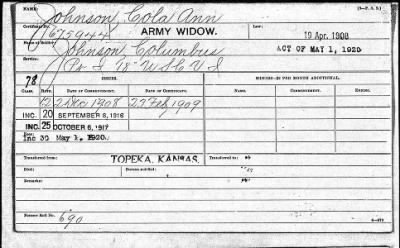 NAME: Johnson, Cola Ann (3—P. A. D.)
Certificate No. 675944 ARMY WIDOW. 19 Apr. 1908
Johnson Columbus ACT OF MAY 1, 1920
Service:
78 ISSUES. MINORS—$2 PER MONTH ADDITIONAL.
CLASS. RATE. DATE OF COMMENCEMENT. DATE OF CERTIFICATE. RATE. DATE OF COMMENCEMENT. DATE OF CERTIFICATE.
12 2 Dec 1908 27 Feb 1909
INC. 20 SEPTEMBER 8, 1916
INC. 25 OCTOBER 6, 1917
Inc 30 May 1, 1920
Transferred from: TOPEKA, KANSAS. Transferred to:
Died: Bureau notified:
Remarks:
Former Roll No. 690